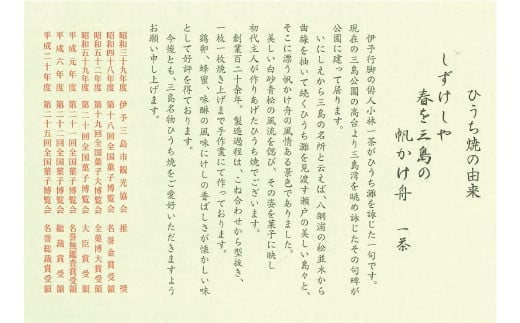 ひうち焼の由来
しずけしや
春を三島の
帆かけ舟
一茶
伊予行脚の俳人小林一茶がひうち灘を詠じた一句です。
現在の三島公園の高台より三島湾を眺め詠じたその句碑が
公園に建って居ります。
いにしえから三島の名所と云えば、八綱浦の松並木から
曲線を描いて続くひうち灘を見渡す瀬戸の美しい島々と、
そこに漂う帆かけ舟の風情ある景色でありました。
美しい白砂青松の風流を偲び、その姿を菓子に映し
初代主人が作りあげたひうち焼でございます。
創業百二十余年。製造過程は、こね合わせから型抜き、
一枚一枚焼き上げまで手作業にて作っております。
鶏卵、蜂蜜、味醂の風味にけしの香ばしさが懐かしい味
として好評を得ております。
今後とも、三島名物ひうち焼をご愛好いただきますよう
お願い申し上げます。
昭和三十九年度 伊予三島市観光協会 推奨
昭和四十八年度 第十八回全国菓子博覧会 名誉金賞受領
昭和五十二年度 第十九回全国菓子大博覧会 全菓博大賞受領
昭和五十九年度 第二十回全国菓子博覧会 大臣賞受領
平成元年度 第二十一回全国菓子博覧会 名誉無鑑査賞受領
平成六年度 第二十二回全国菓子博覧会 総裁賞受領
平成二十年度 第二十五回全国菓子博覧会 名誉総裁賞受領